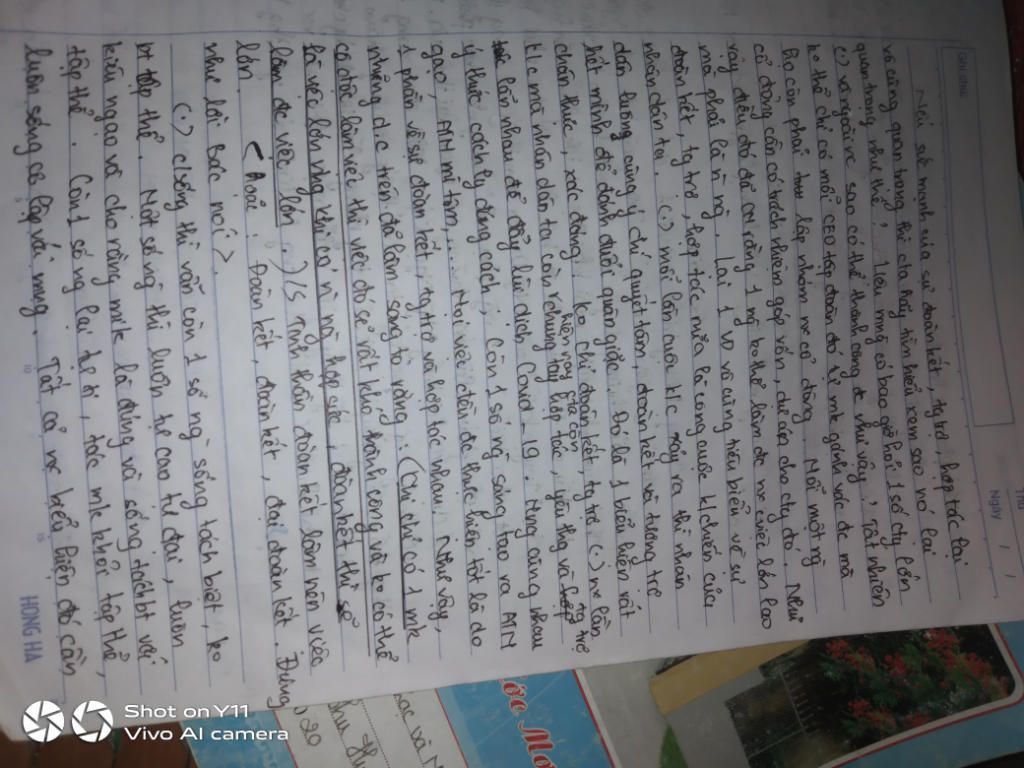 GHI CHUNG
Thứ
Ngày / /
Nói sứ mệnh của sự đoàn kết, tg trợ, hợp tác lại
vô cùng quan trọng thì cta hãy tìm hiểu xem sao nó lại
quan trọng như thế, 1 lẽ mng có bao giờ hỏi 1 số cty lớn
(.) và ngoài nc sao có thể thành công đc như vậy, Tất nhiên
ko thể chỉ có mỗi CEO tập đoàn đó tự mk gánh vác đc mà
họ còn phải lập nhóm nc cổ đông, Mỗi một ng
cổ đông cần có trách nhiệm góp vốn, dự án cho cty đó, Như
vậy điều đó đã coi rằng 1 ng ko thể làm đc nc việc lớn lao
mà phải là n ng, Lại 1 VD vô cùng tiêu biểu về sự
đoàn kết, tg trợ, hợp tác nữa là công cuộc k/chiến của
nhân dân ta. (.) mỗi lần cuộc k/c xảy ra thì nhân
dân luôn cùng ý chí quyết tâm, đoàn kết và tương trợ
hết mình để đánh đuổi quân giặc. Đó là 1 biểu hiện rất
chân thực, xác đáng. Ko chỉ đoàn kết, tg trợ (.) nc lần
k/c mà nhân dân ta còn hiện nay của còn chung tay hợp tác, yêu thg và tg trợ
lẫn nhau để đẩy lùi dịch Covid-19. Mng cùng nhau
ý thức cách ly đúng cách, Còn 1 số ng sáng tạo ra ATM
gạo, ATM mì tôm,... Mọi việc đàn đc thực hiện tốt là do
1 phần về sự đoàn kết, tg trợ và hợp tác nhau. Như vậy,
những d/c trên đã làm sáng tỏ rằng: (Chỉ có 1 mk
cá độc làm việc thì việc đó sẽ rất khó thành công và ko có thể
là việc lớn nhg khi có n ng hợp sức, đoàn kết thì sẽ
làm đc việc lớn.) /S Tinh thần đoàn kết làm nên việc
lớn. < Hoặc: Đoàn kết, đoàn kết, đại đoàn kết. Đúng
như lời Bác nói >.
(.) c/sống thì vẫn còn 1 số ng sống tách biệt, ko
tập thể. Một số ng thì luôn tự cao tự đại, luôn
kiêu ngạo và cho rằng mik là đúng và sống tách bt với
tập thể. Còn 1 số ng lại tự ti, tách mk khỏi tập thể,
luôn sống cô lập với mng. Tất cả nc biểu hiện đó cần
10
15
HONG HA
Shot on Y11
Vivo AI camera